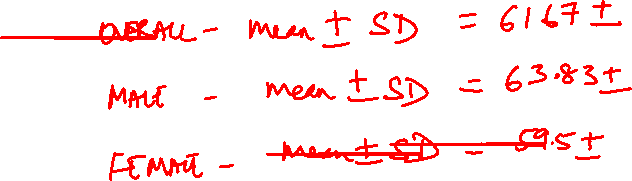 OVERALL - mean ± SD = 61.67 ±
MALE - mean ± SD = 63.83 ±
FEMALE - mean ± SD = 59.5 ±